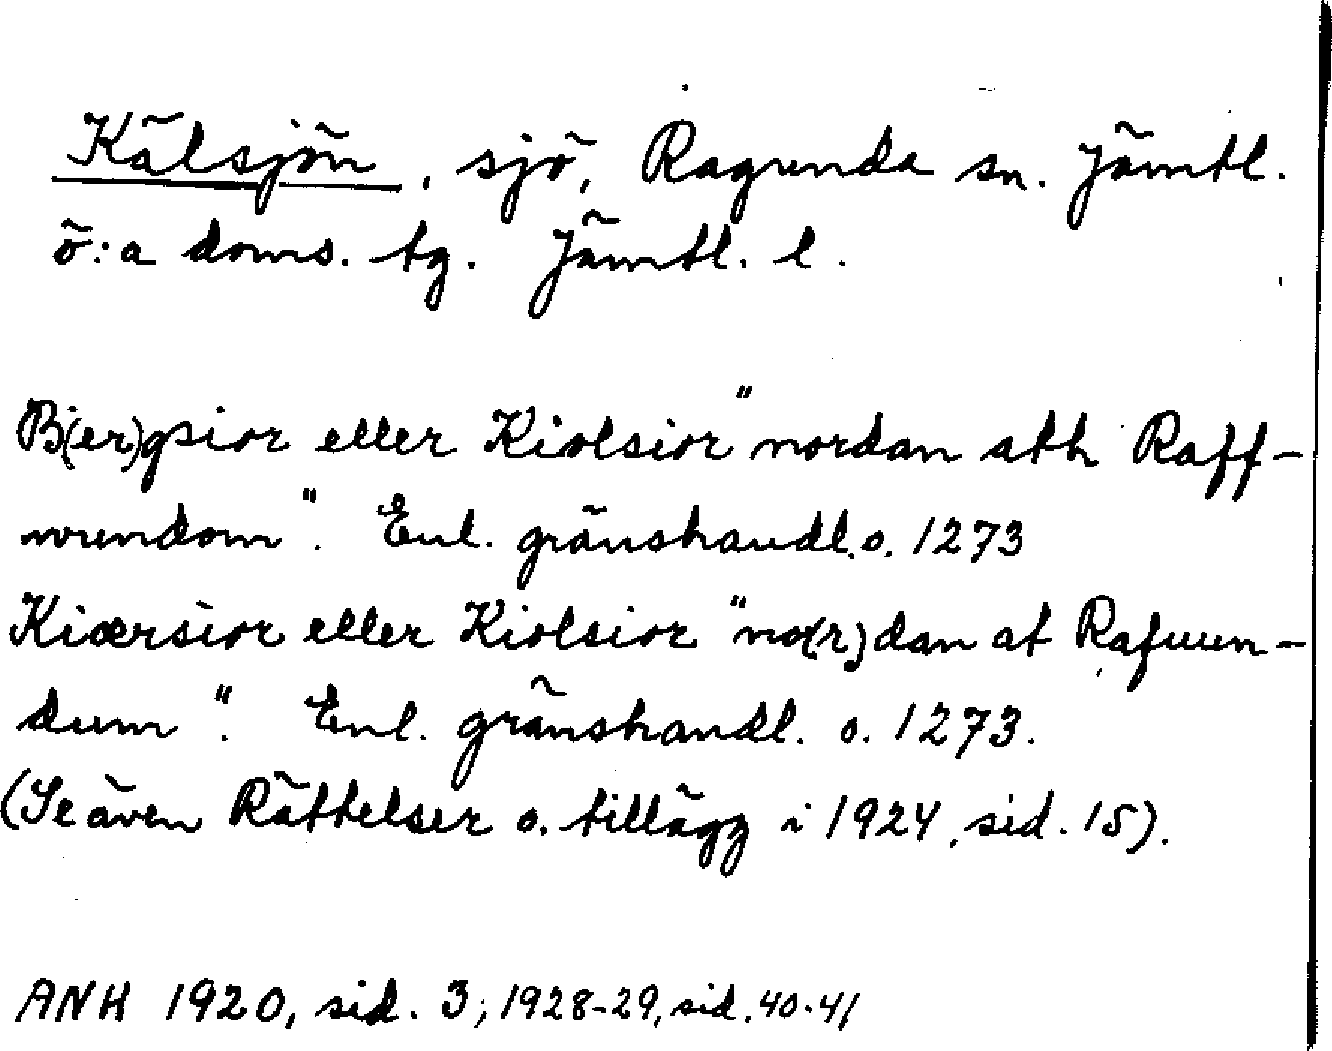 Kälsjön, sjö, Ragunda sn. Jämtl.
ö:a doms. tg. Jämtl. l.
B(er)gsior eller Kiolsior "nordan ath Raff-
wundom". Enl. gränshandl. o. 1273
Kiærsior eller Kiolsior "no(r)dan at Rafuun-
dum". Enl. gränshandl. o. 1273.
(Se även Rättelser o. tillägg i 1924, sid. 15).
ANH 1920, sid. 3; 1928-29, sid. 40-41